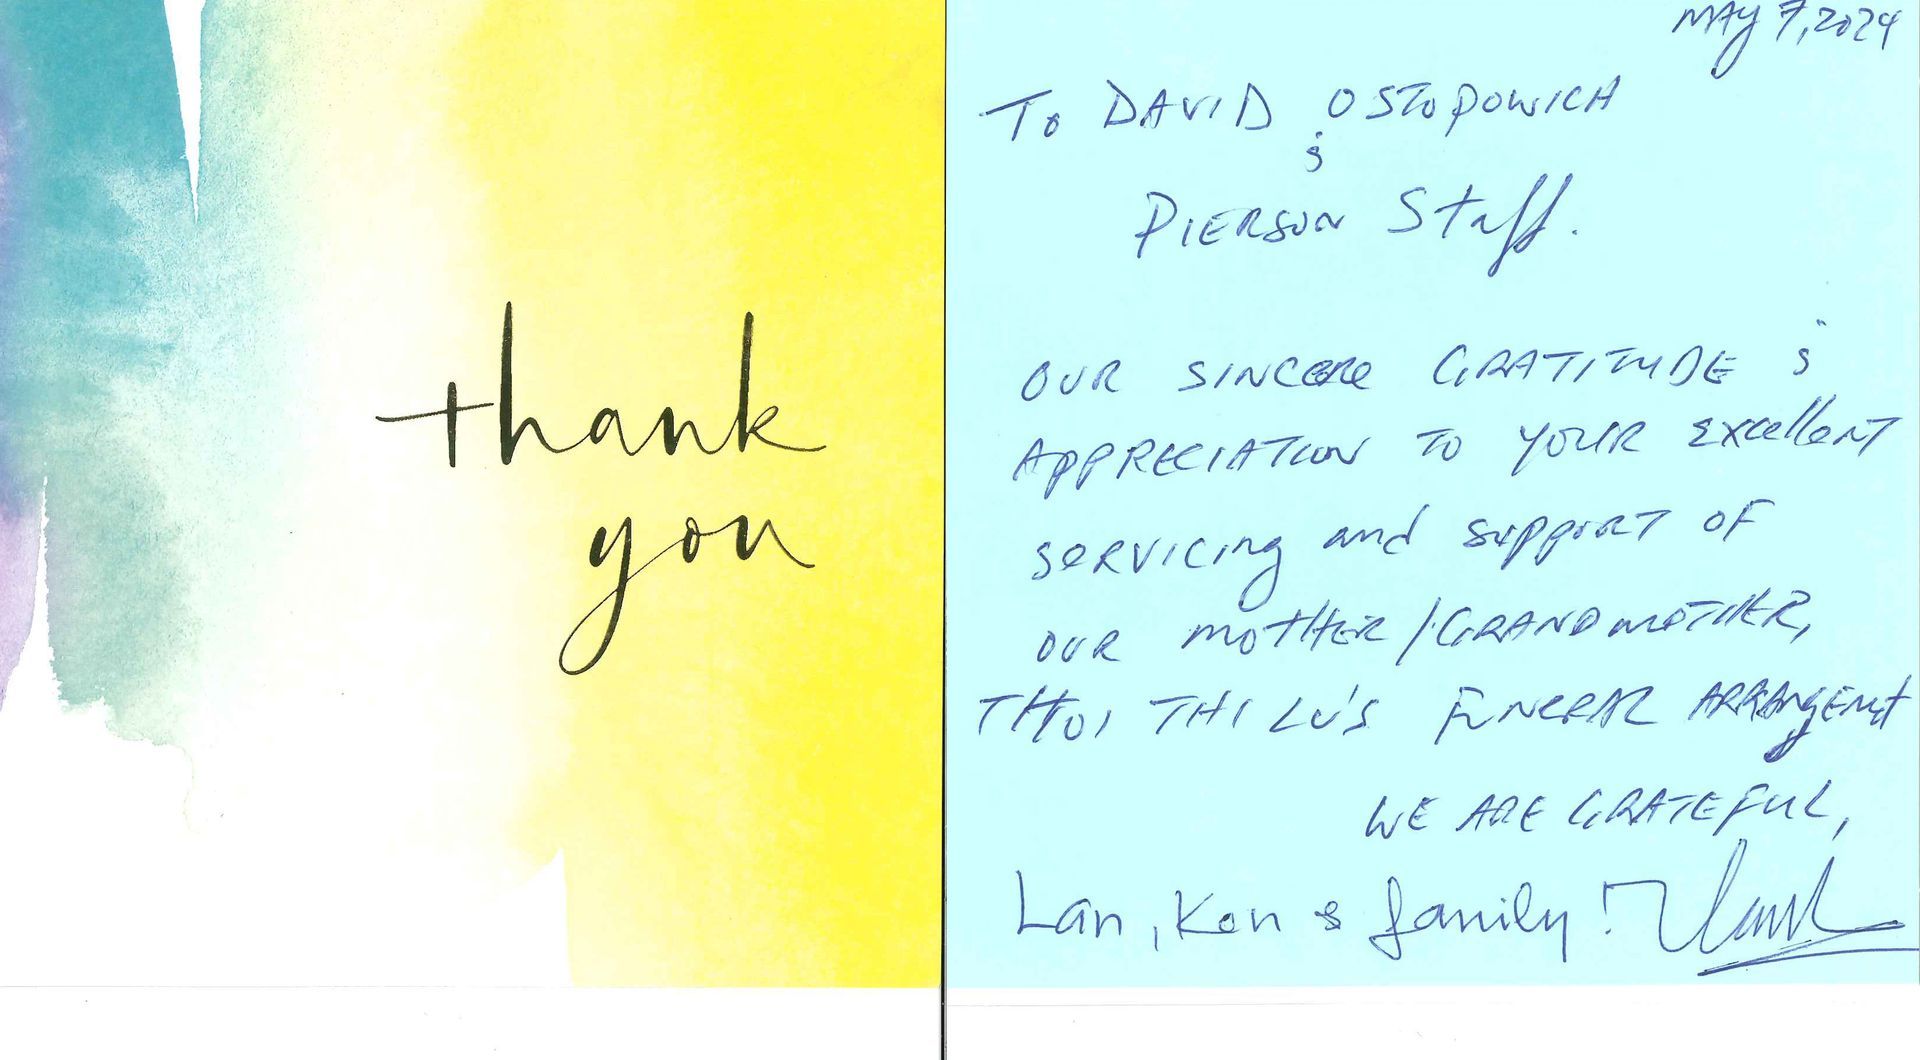 thank
you
MAY 7, 2024
To DAVID OSTOPOWICH
&
PIERSON Staff.
OUR SINCERE GRATITUDE &
APPRECIATION TO YOUR Excellent
SERVICING and support OF
OUR MOTHER/GRANDMOTHER,
THOI THI LU'S FUNERAL ARRANGEMENT
WE ARE GRATEFUL,
Lan, Ken & family!